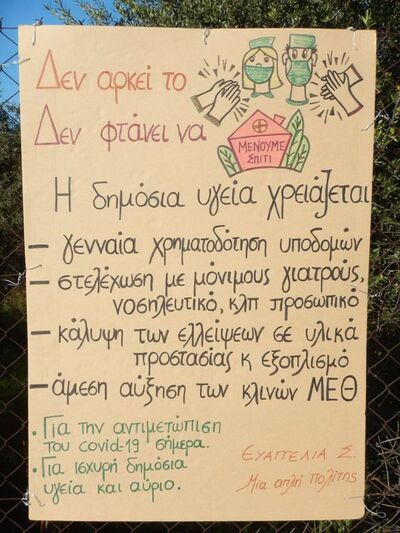 Δεν αρκεί το
Δεν φτάνει να
ΜΕΝΟΥΜΕ
ΣΠΙΤΙ
Η δημόσια υγεία χρειάζεται
– γενναία χρηματοδότηση υποδομών
– στελέχωση με μόνιμους γιατρούς,
νοσηλευτικό, κλπ προσωπικό
– κάλυψη των ελλείψεων σε υλικά
προστασίας κ εξοπλισμό
– άμεση αύξηση των κλινών ΜΕΘ
• Για την αντιμετώπιση
του covid-19 σήμερα.
• Για ισχυρή δημόσια
υγεία και αύριο.
ΕΥΑΓΓΕΛΙΑ Σ.
Μια απλή πολίτης